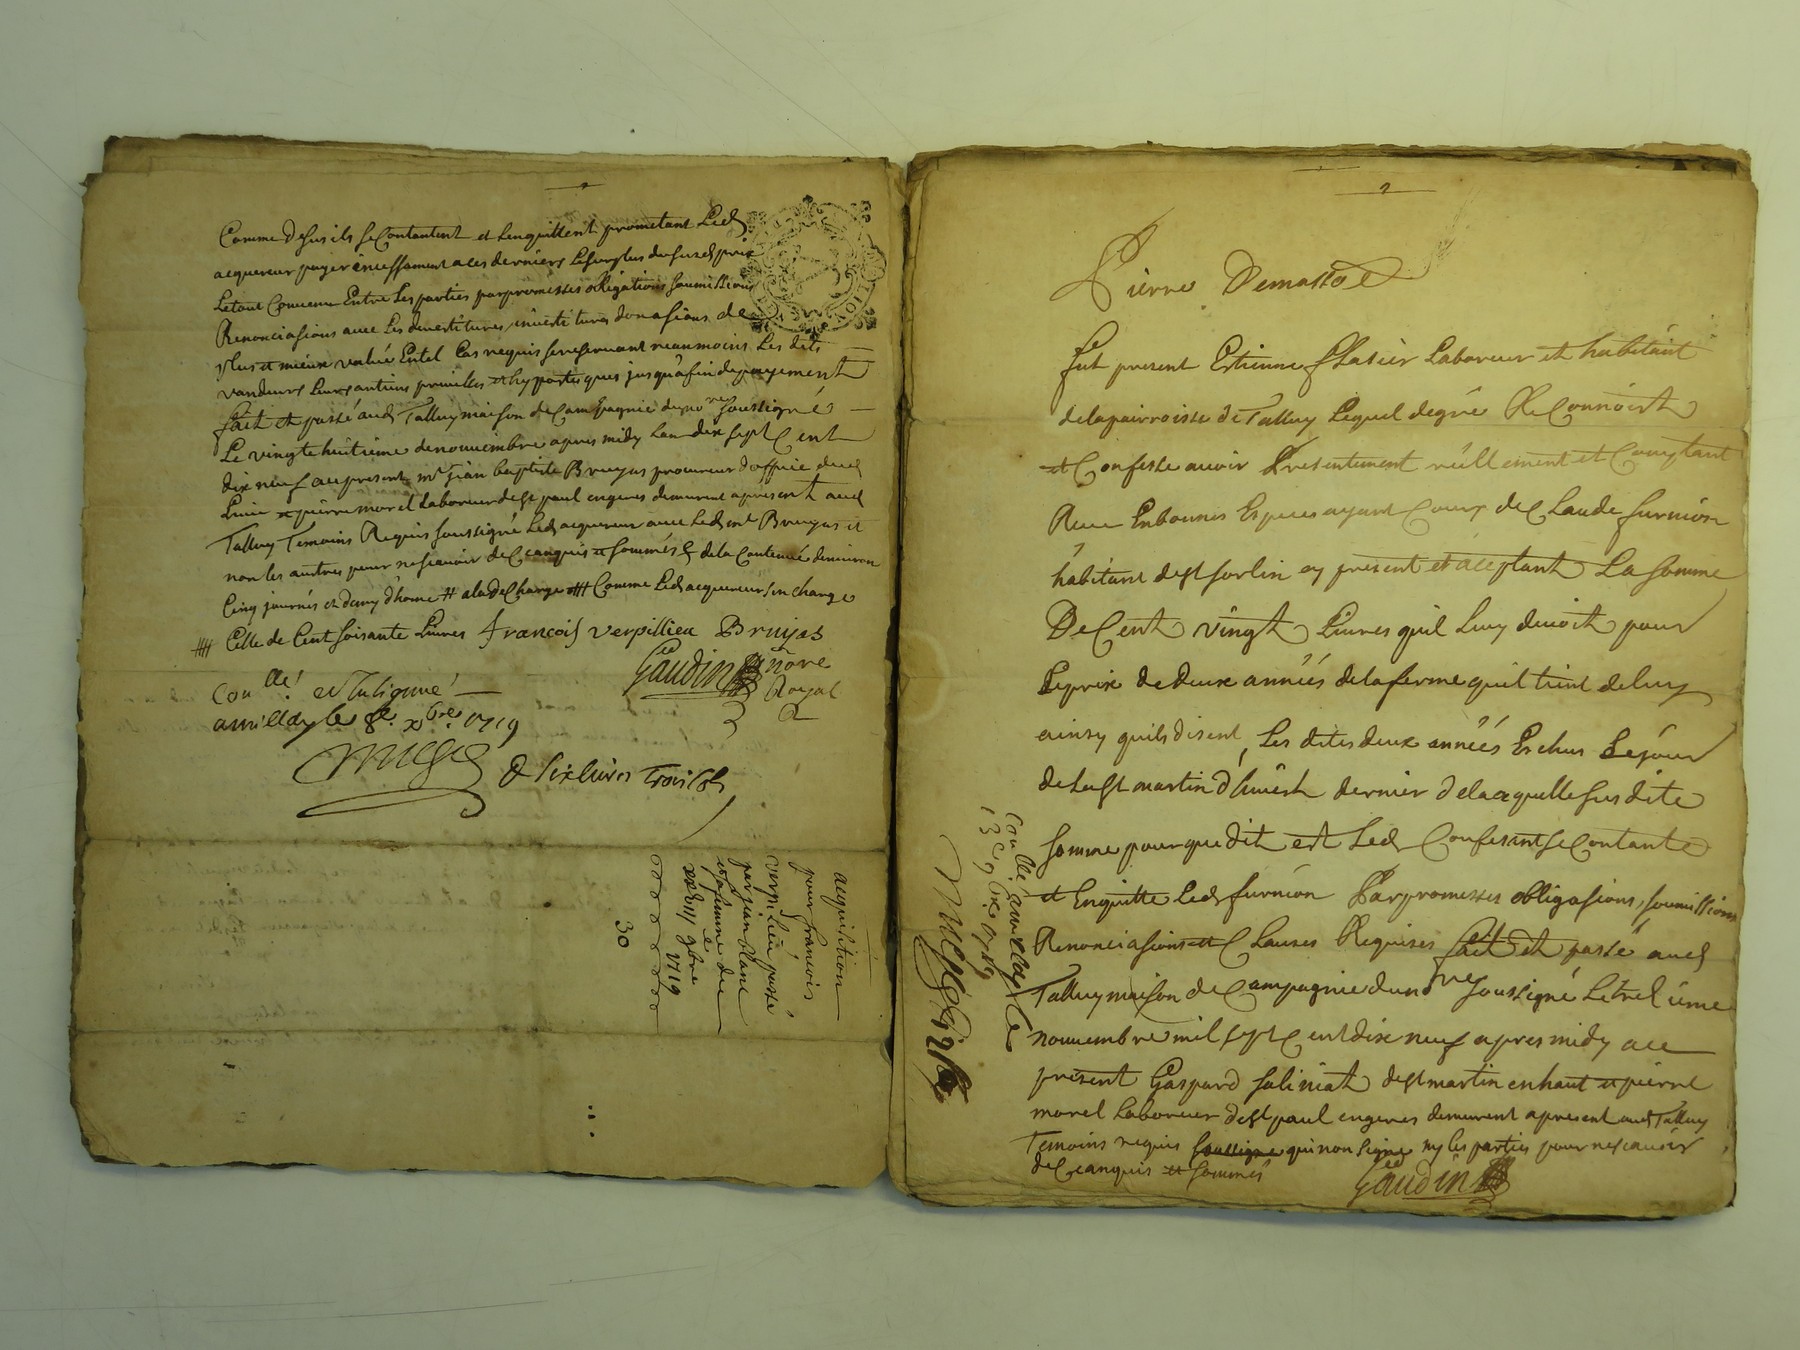 Comme desus ils se Contantent et Lenquittent prometant Led
acquereur payer incessament a ces derniers Le surplus du susd prix
Le tout Convenu Entre Les parties par promesses obligations soumissions
Renonciasions avec Les devestitures, investitures donasions de
plus et mieux value Entel Cas requis se reservant neanmoins Les dits
vandeurs Leurs antiens privileg et hyporteques jusqu'a fin de payement
fait et passé aud Talluy maison de Campagnie du no re soussigné
Le vingt huitieme de novembre apres midy Lan dix sept Cent
dix neuf au present mr jian baptiste Bruyas procureur d'office dud
Lieu et pierre morel Laboreur de st paul en geres demeurent apresent aud
Talluy Temoins Requis soussigné Led acquereur avec Led mr Bruyas et
non les auttres pour ne scavoir de Ce anquis et sommés & de la Contenue denviron
Cinq journés et demy d'home # a la de Charge ## Comme Led acquereur sen charge
## Celle de Cent soisante Livres françois verpillieu Bruyas
Gaudin nore
Royal
Con llé et Insigniné
a millery le 8e xbre 1719
R six livres Trois sols
acquisition
pour francois
verpilieu passé
par jian
et sa femme du
xxviii 9bre
1719
30
Pierre Demasso
fut present Estienne flasier Laboreur et habitant
de la pairroisse de Talluy Lequel de gré ReConnoist
et Confesse avoir Presentement réellement et Comptant
Receu En bonnes Especes ayant Cours de Claude furnion
habitant de st sorlin cy present et acceptant La somme
De Cent vingt Livres quil Luy devoit pour
Le prix de deux années de la ferme quil tient de luy
ainsy quils disent, Les dites deux années Escheus Le jour
de La St martin d'hivert dernier de la quelle sus dite
somme pour que dit est Led Confesant se Contante
et Enquitte Led furnion Par promesses obligasions, soumissions
Renonciasions et Clauses Requises fait et passé aud
Talluy maison de Campagnie du no re soussigné Le treisieme
nouvembre mil sept Cent dix neuf apres midy a ce
present Gaspard saliniat de st martin en haut et pierre
morel Laboreur de st paul en geres demeurent apresent aud Talluy
Temoins requis soussigne qui non signe ny les parties pour ne scavoir
de Ce anquis et sommés
Gaudin
Con llé a millery le
13e 9bre 1719